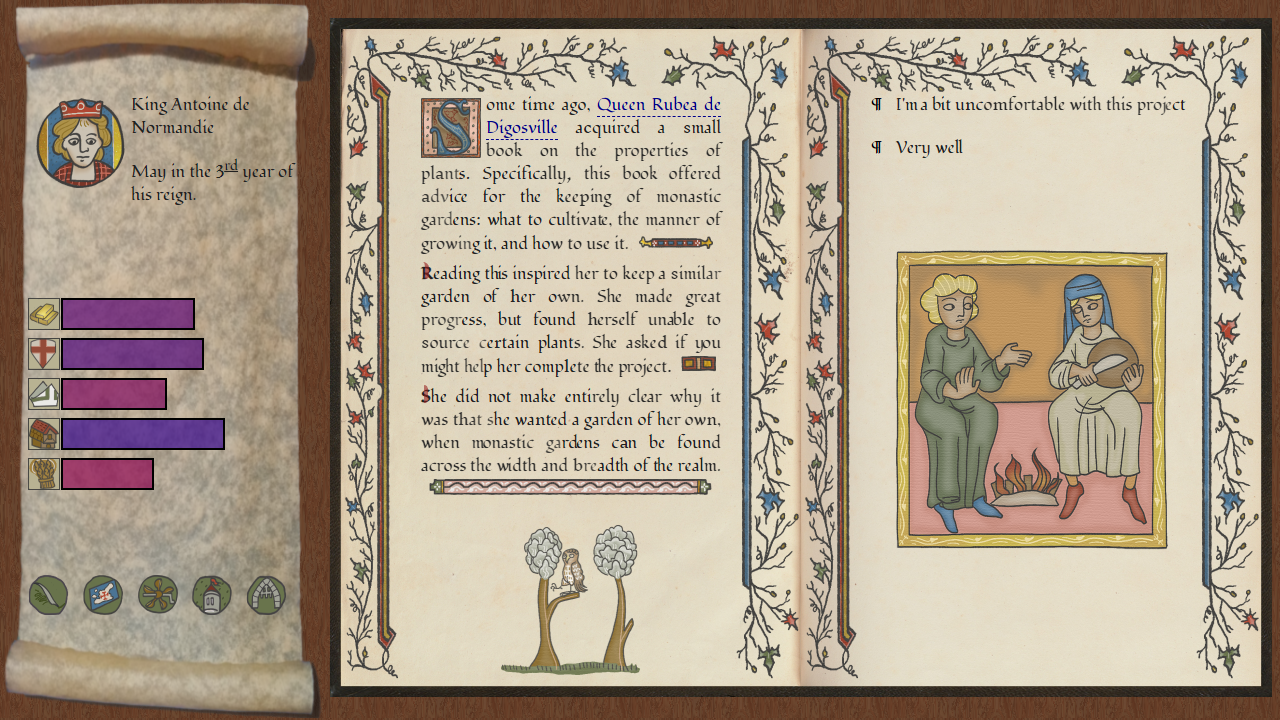 King Antoine de
Normandie
May in the 3rd year of
his reign.
Some time ago, Queen Rubea de
Digosville acquired a small
book on the properties of
plants. Specifically, this book offered
advice for the keeping of monastic
gardens: what to cultivate, the manner of
growing it, and how to use it.
Reading this inspired her to keep a similar
garden of her own. She made great
progress, but found herself unable to
source certain plants. She asked if you
might help her complete the project.
She did not make entirely clear why it
was that she wanted a garden of her own,
when monastic gardens can be found
across the width and breadth of the realm.
¶ I'm a bit uncomfortable with this project
¶ Very well